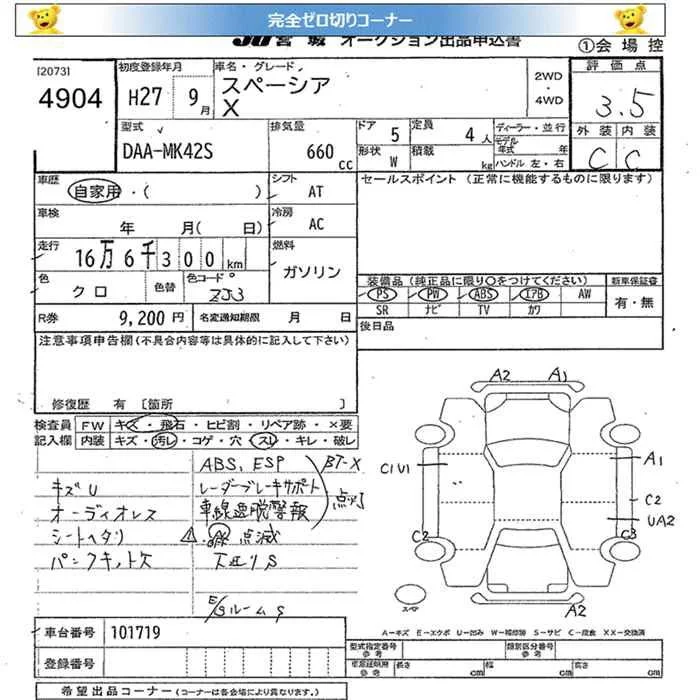 完全ゼロ切りコーナー
JU宮城 オークション出品申込書
①会場控
[2073]
4904
初度登録年月
H27 9月
車名・グレード
スペーシア
X
2WD
・
4WD
評価点
3.5
外装 内装
C C
型式
DAA-MK42S
排気量
660 cc
ドア 5
定員 4人
形状 W
積載 kg
ディーラー・並行
モデル年式 年
ハンドル 左・右
車歴
自家用・( )
シフト AT
セールスポイント (正常に機能するものに限ります)
車検
年 月( 日)
冷房 AC
走行
16万6千300km
燃料
ガソリン
色
クロ
色替
色コード
ZJ3
装備品(純正品に限り○をつけてください)
新車保証書
PS PW ABS エアB AW
SR ナビ TV カワ
有・無
R券 9,200円
名変通知期限 月 日
後日品
注意事項申告欄(不具合内容等は具体的に記入して下さい)
修復歴 有 [箇所 ]
検査員記入欄
FW キズ・飛石・ヒビ割・リペア跡・×要
内装 キズ・汚レ・コゲ・穴・スレ・キレ・破レ
ABS, ESP
BT-X
キズU
レーダーブレーキサポート
点灯
オーディオレス
車線逸脱警報
シートヘタリ
点滅
パンクキット欠
天井リS
E/gルームS
A2 A1
C1U1
A1
C2
UA2
C2
C3
A2
スペア
A−キズ E−エクボ U−凹み W−補修跡 S−サビ C−腐食 XX−交換済
車台番号 101719
登録番号
型式指定番号 参考
類別区分番号 参考
車庫証明用 参考
長さ cm
幅 cm
高さ cm
希望出品コーナー(コーナーは各会場により異なります。)